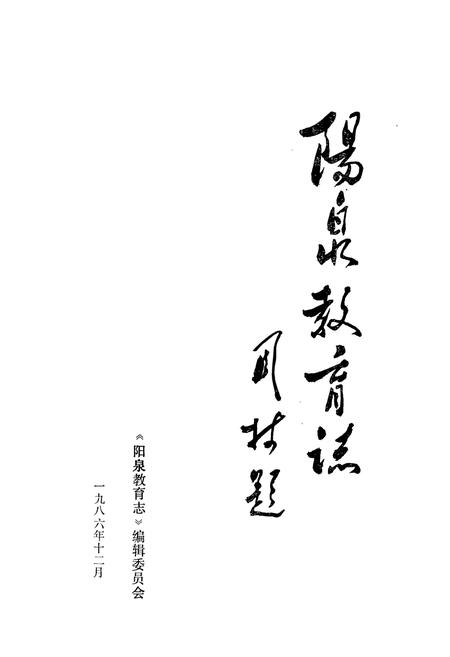 陽泉教育誌
周林题
《阳泉教育志》编辑委员会
一九八六年十二月